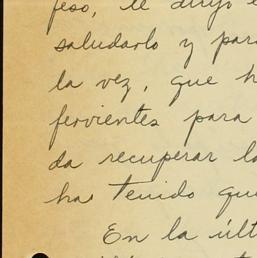 feso, le dirijo e
saludarlo y para
la vez, que h
fervientes para
da recuperar la
ha tenido que
En la últ